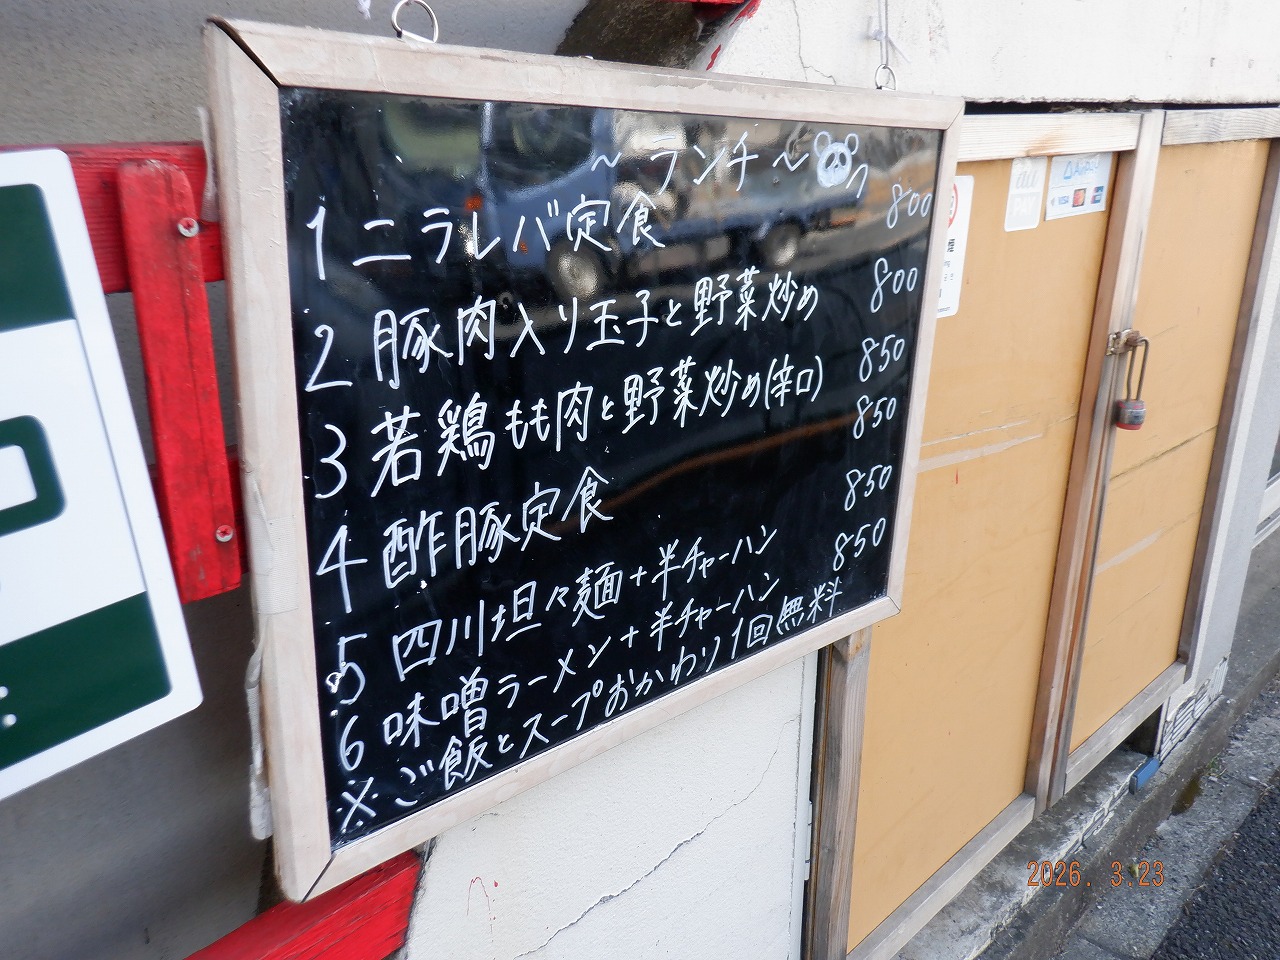 ～ランチ～
1 ニラレバ定食 800
2 豚肉入り玉子と野菜炒め 800
3 若鶏もも肉と野菜炒め(辛口) 850
4 酢豚定食 850
5 四川坦々麺+半チャーハン 850
6 味噌ラーメン+半チャーハン 850
※ご飯とスープおかわり1回無料
au PAY
AirPAY
VISA
2026. 3.23